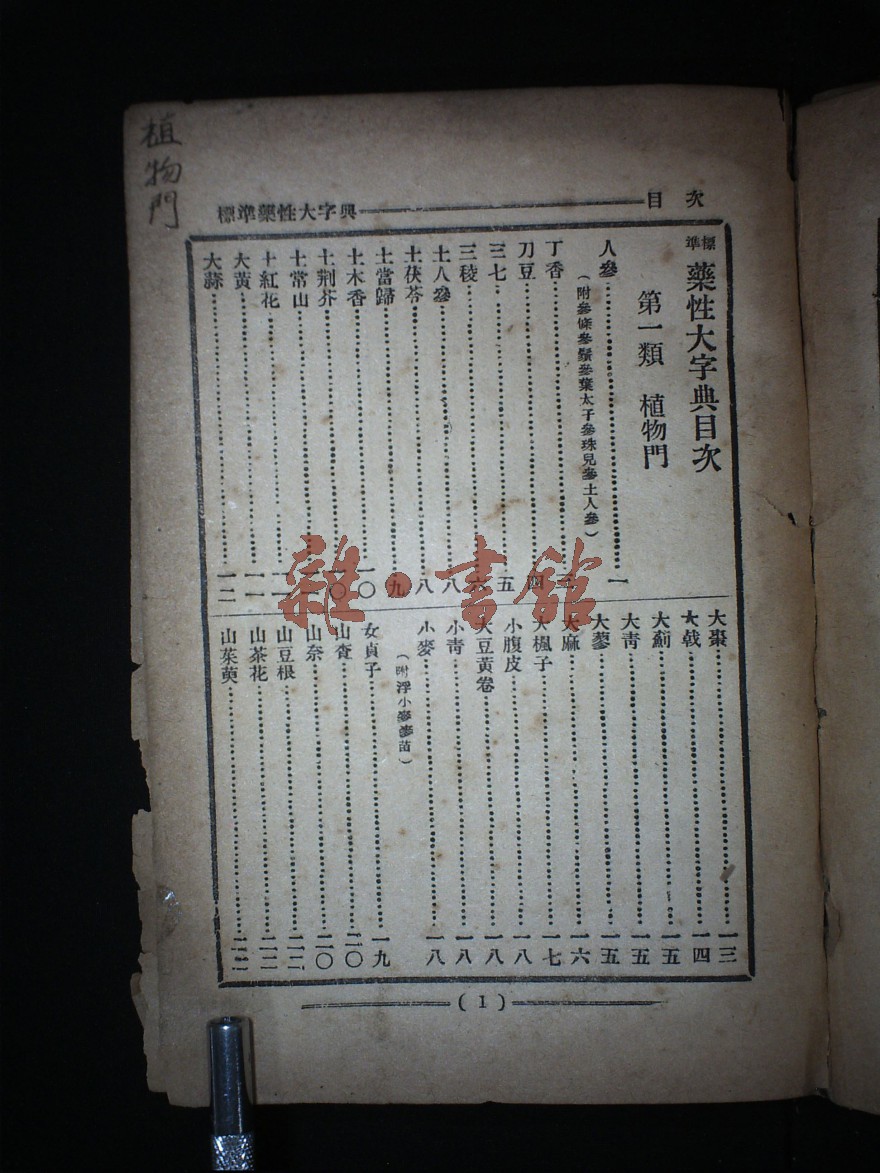 植物門
目次
標準藥性大字典
標準 藥性大字典目次
第一類 植物門
人參⋯⋯一
(附參條參鬚參葉太子參珠兒參土人參)
丁香⋯⋯三
刀豆⋯⋯四
三七⋯⋯五
三稜⋯⋯六
土人參⋯⋯八
土茯苓⋯⋯八
土當歸⋯⋯九
土木香⋯⋯一〇
土荆芥⋯⋯一〇
土常山⋯⋯
土紅花⋯⋯一一
大黃⋯⋯一一
大蒜⋯⋯一二
大棗⋯⋯一三
大戟⋯⋯一四
大薊⋯⋯一五
大青⋯⋯一五
大蓼⋯⋯一五
大麻⋯⋯一六
大楓子⋯⋯一七
小腹皮⋯⋯一八
大豆黃卷⋯⋯一八
小青⋯⋯一八
小麥⋯⋯一八
(附浮小麥麥苗)
女貞子⋯⋯一九
山查⋯⋯二〇
山奈⋯⋯二〇
山豆根⋯⋯二一
山茶花⋯⋯二二
山茱萸⋯⋯二二
(1)
雜·書館